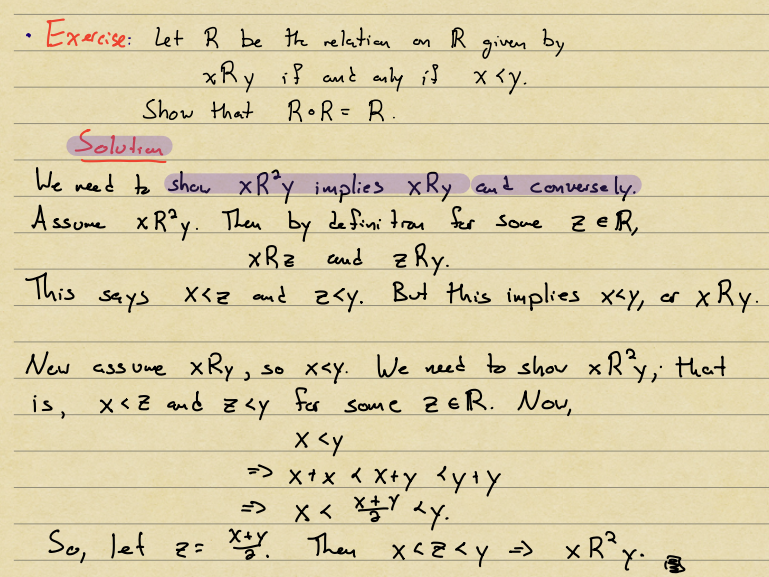 • Exercise: Let R be the relation on ℝ given by
xRy if and only if x<y.
Show that R∘R = R.
Solution
We need to show xR²y implies xRy and conversely.
Assume xR²y. Then by definition for some z∈ℝ,
xRz and zRy.
This says x<z and z<y. But this implies x<y, or xRy.
Now assume xRy, so x<y. We need to show xR²y, that
is, x<z and z<y for some z∈ℝ. Now,
x<y
=> x+x < x+y < y+y
=> x < (x+y)/2 < y.
So, let z = (x+y)/2. Then x<z<y => xR²y.